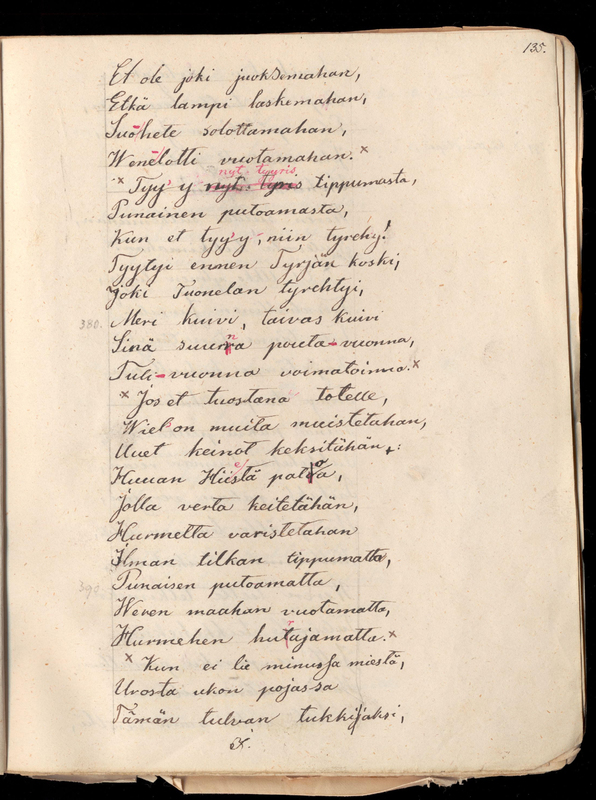 135.
Et ole joki juoksemahan,
Etkä lampi laskemahan,
Suo-hete solottamahan,
Wene-lotti vuotamahan.×
nyt tyyris
× Tyy'y nyt. tyris tippumasta,
Punainen putoamasta,
Kun et tyy'y, niin tyrehy!
Tyytyi ennen Tyrjän koski,
Joki Tuonelan tyrehtyi,
380. Meri kuivi, taivas kuivi
Sinä suurna pouta-vuonna,
Tuli-vuonna voimatoinna.×
× Jos et tuostana totelle,
Wiel' on muita muistetahan,
Uuet keinot keksitähän:
Huuan Hiiestä patoa,
Jolla verta keitetähän,
Hurmetta varistetahan
Ilman tilkan tippumatta,
390. Punaisen putoamatta,
Weren maahan vuotamatta,
Hurmehen hurajamatta.×
× Kun ei lie minussa miestä,
Urosta ukon pojassa
Tämän tulvan tukkijaksi,